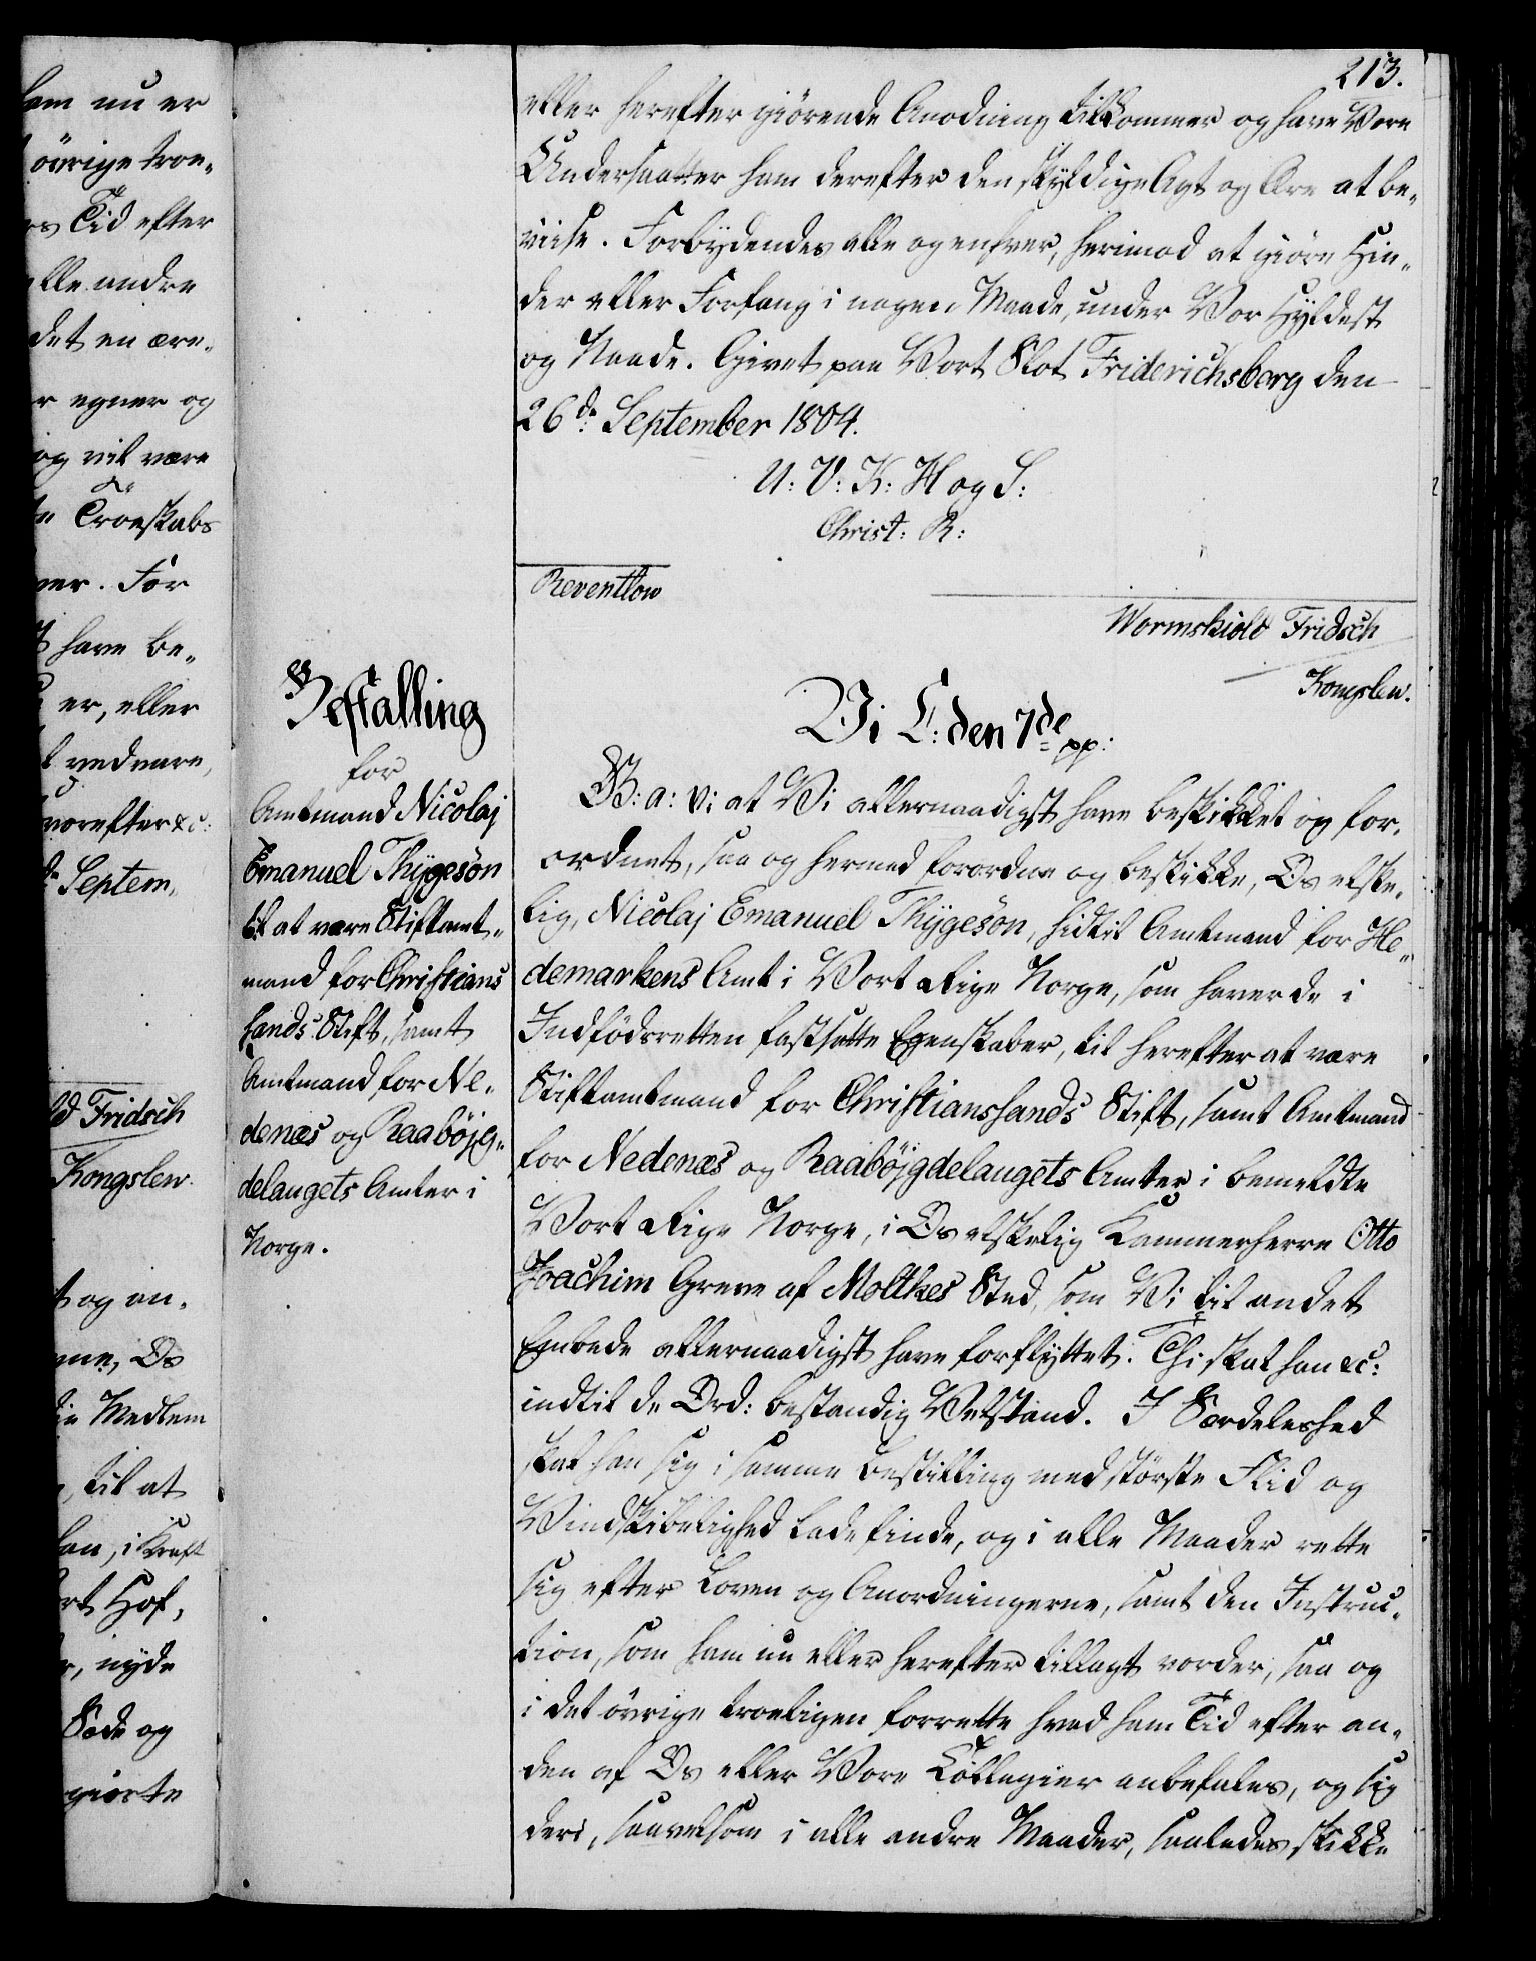 213.
eller herefter giörende Anodning tilkommer og have Vore
Undersaatter ham derefter den skyldige Agt og Ære at be„
viise. Forbydendes alle og enhver, herimod at giöre Hin„
der eller Forfang i nogen Maade, under Vor Hyldest
og Naade. Givet paa Vort Slot Friderichsberg den
26de September 1804.
U: V: K: H og S:
Christ: R:
Reventlow
Wormskiold Fridsch
Kongslew.
Bestalling
for
Amtmand Nicolaj
Emanuel Thygeson
til at være Stiftamt„
mand for Christians
sands Stift, samt
Amtmand for Ne„
denæs og Raabøjg„
delaugets Amter i
Norge.
Vi C: den 7de pp:
G: a: v: at Vi allernaadigst have beskikket og for„
ordnet, saa og hermed forordne og beskikke, Os elske„
lig, Nicolaj Emanuel Thygeson, hidtil Amtmand for He„
demarkens Amt i Vort Rige Norge, som haver de i
Indfödsretten fastsatte Egenskaber, til herefter at være
Stiftamtmand for Christianssands Stift, samt Amtmand
for Nedenæs og Raabøjgdelaugets Amter i bemeldte
Vort Rige Norge, i Os elskelig Kammerherre Otto
Joachim Greve af Moltkes Sted, som Vi til andet
Embede allernaadigst have forflyttet. Thi skal han &c:
indtil de Ord: bestandig Velstand. I Særdeleshed
skal han sig i samme Bestilling med störste Flid og
Vindskibelighed lade finde, og i alle Maader rette
sig efter Loven og Anordningerne, samt den Instruc„
tion, som ham nu eller herefter tillagt vorder, saa og
i det övrige troeligen forrette hvad ham Tid efter an„
den af Os eller Vore Collegier anbefales, og sig
deri, saavelsom i alle andre Maader, saaledes skikke
ham nu er
övrige troe„
Tid efter
alle andre
det en ære„
egner og
og vil være
Troeskabs
For
have be„
er, eller
vedvare,
hvorefter &c:
Septem„
Fridsch
Kongslew.
og an„
Os
Medlem
til at
han, i Kraft
Hof,
nyde
Sæde og
giorte